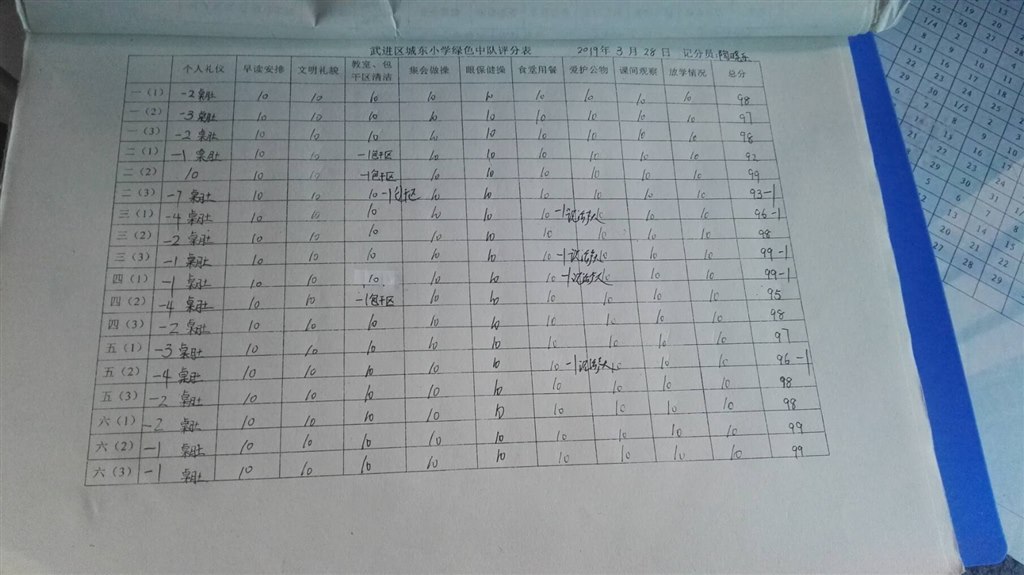 武进区城东小学绿色中队评分表 2019年 3月 28日 记分员:
个人礼仪 早读安排 文明礼貌 教室、包干区清洁 集会做操 眼保健操 食堂用餐 爱护公物 课间观察 放学情况 总分
一(1) -2 桌肚 10 10 10 10 10 10 10 10 10 98
一(2) -3 桌肚 10 10 10 10 10 10 10 10 10 97
一(3) -2 桌肚 10 10 10 10 10 10 10 10 10 98
二(1) -1 桌肚 10 10 -1包干区 10 10 10 10 10 10 92
二(2) 10 10 10 -1包干区 10 10 10 10 10 10 99
二(3) -7 桌肚 10 10 10 -1包干区 10 10 10 10 10 10 93-1
三(1) -4 桌肚 10 10 10 10 10 10 -1 10 10 96-1
三(2) -2 桌肚 10 10 10 10 10 10 10 10 10 98
三(3) -1 桌肚 10 10 10 10 10 10 -1 10 10 99-1
四(1) -1 桌肚 10 10 10 10 10 10 -1 10 10 99-1
四(2) -4 桌肚 10 10 -1包干区 10 10 10 10 10 10 95
四(3) -2 桌肚 10 10 10 10 10 10 10 10 10 98
五(1) -3 桌肚 10 10 10 10 10 10 10 10 10 97
五(2) -4 桌肚 10 10 10 10 10 10 -1 10 10 96-1
五(3) -2 桌肚 10 10 10 10 10 10 10 10 10 98
六(1) -2 桌肚 10 10 10 10 10 10 10 10 10 98
六(2) -1 桌肚 10 10 10 10 10 10 10 10 10 99
六(3) -1 桌肚 10 10 10 10 10 10 10 10 10 99